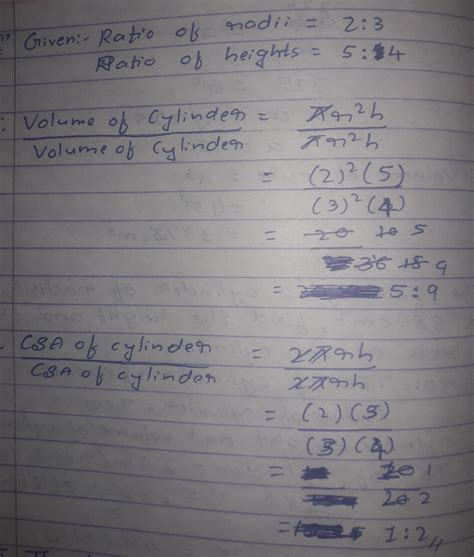 Given:- Ratio of radii = 2:3
Ratio of heights = 5:4
Volume of Cylinder = πr²h
Volume of Cylinder πr²h
= (2)²(5)
(3)²(4)
= 20 10 5
36 18 9
= 5:9
CSA of cylinder = 2πrh
CSA of cylinder 2πrh
= (2)(3)
(3)(4)
= 20 1
20 2
= 1:2